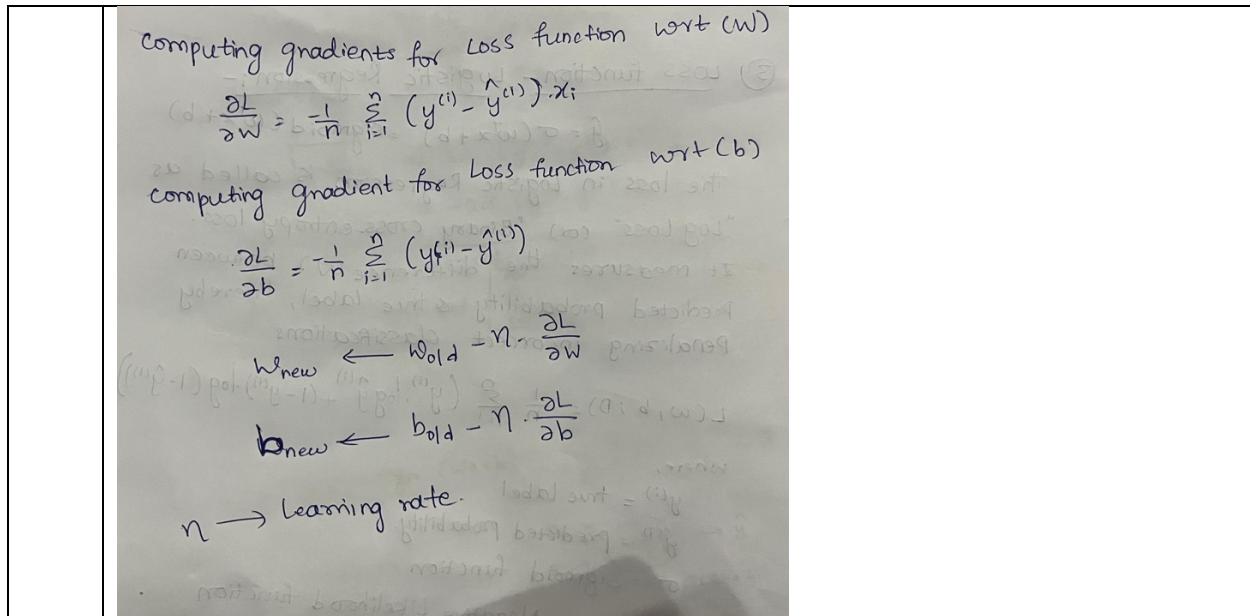 Computing gradients for Loss function wrt (W)
∂L/∂W = -1/n Σ_{i=1}^{n} (y^{(i)} - ŷ^{(i)}).x_i
Computing gradient for Loss function wrt (b)
∂L/∂b = -1/n Σ_{i=1}^{n} (y^{(i)} - ŷ^{(i)})
W_{new} ← W_{old} - η · ∂L/∂W
b_{new} ← b_{old} - η · ∂L/∂b
η → Learning rate.